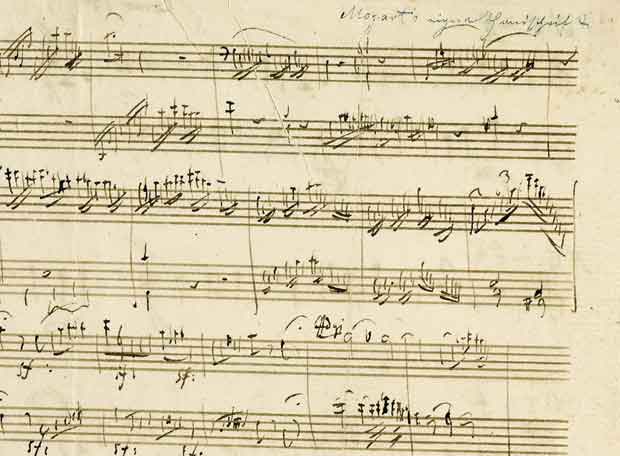 Mozart's eigne Handschrift
3
sf: sf: sf:
sf: sf: sf: